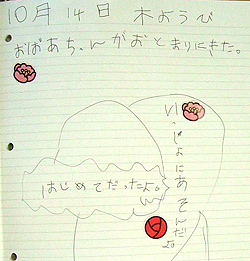 10月14日 木ようび
おばあちゃんがおとまりにきた。
いっじょにあそんだよ。
はじめてだったよ。